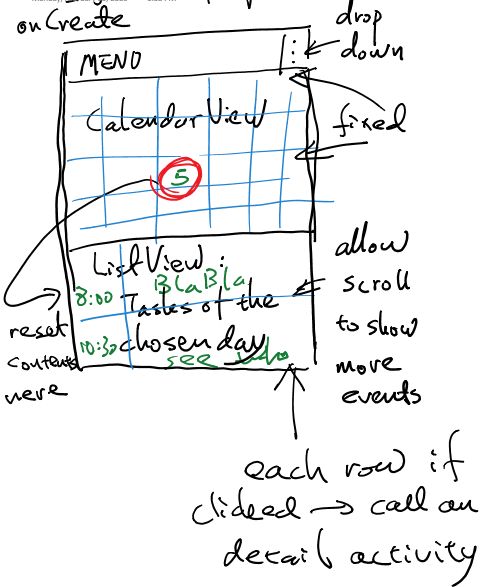 onCreate
drop
down
MENO
⋮
CalendarView
fixed
5
ListView :
8:00 BlaBla
Tasks of the
10:30 chosen day
see
allow
scroll
to show
more
events
reset
contents
here
each row if
clicked → call an
detail activity